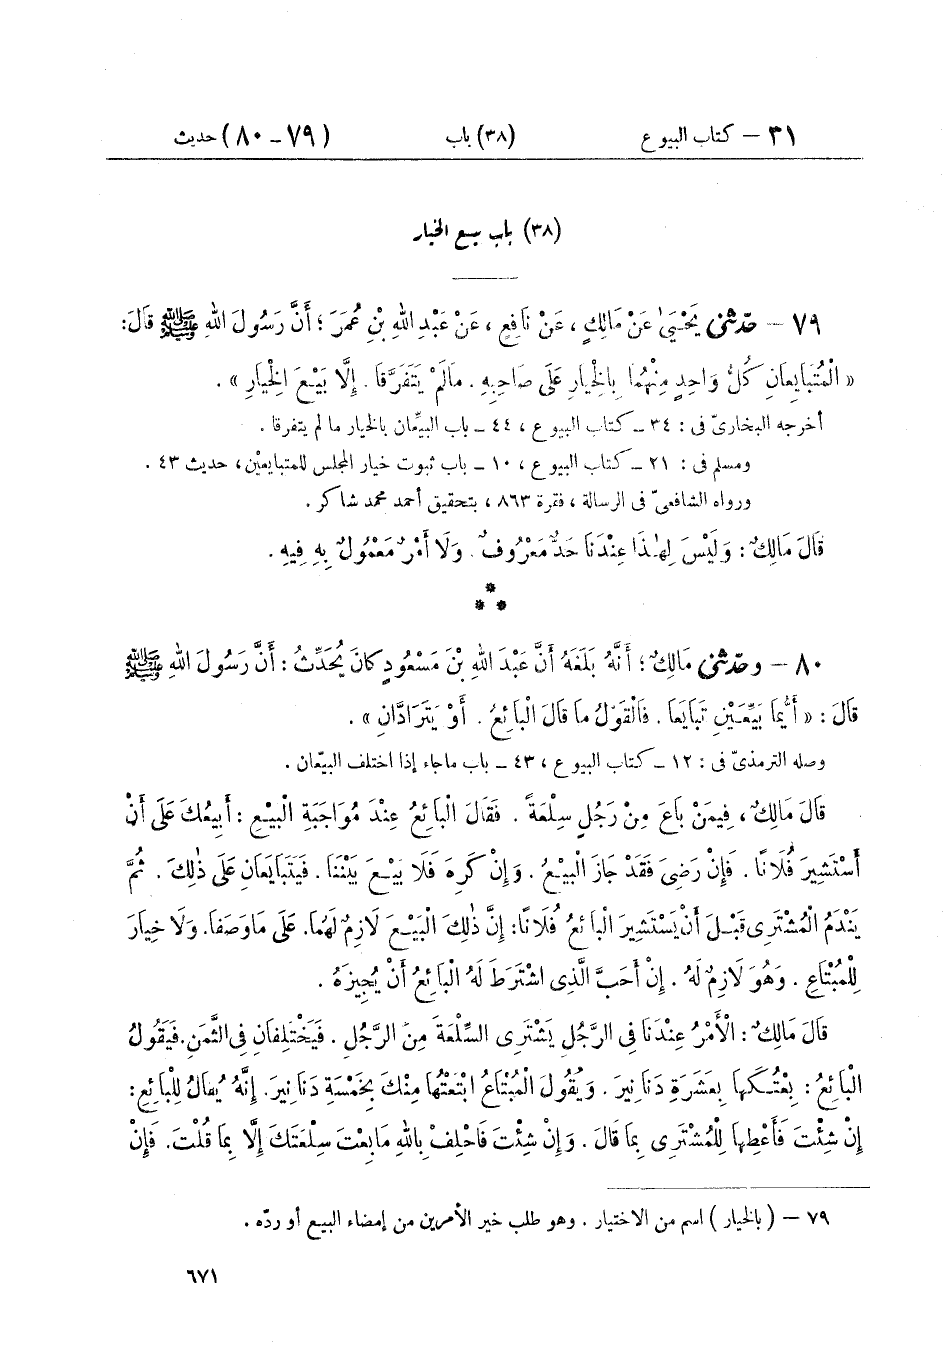 ٣١ – كتاب البيوع (٣٨) باب (٧٩ - ٨٠) حديث
(٣٨) باب بيع الخيار
٧٩ – حدّثنى يَحْيَىٰ عَنْ مَالِكٍ ، عَنْ نَافِعٍ ، عَنْ عَبْدِ اللهِ بْنِ عُمَرَ ؛ أَنَّ رَسُولَ اللهِ ﷺ قَالَ:
« الْمُتَبَايِعَانِ كُلُّ وَاحِدٍ مِنْهُمَا بِالْخِيَارِ عَلَى صَاحِبِهِ . مَالَمْ يَتَفَرَّقَا . إِلَّا بَيْعَ الْخِيَارِ » .
أخرجه البخارىّ فى : ٣٤ – كتاب البيوع ، ٤٤ – باب البيِّعان بالخيار ما لم يتفرقا .
ومسلم فى : ٢١ – كتاب البيوع ، ١٠ – باب ثبوت خيار المجلس للمتبايعيْن ، حديث ٤٣ .
ورواه الشافعىّ فى الرسالة ، فقرة ٨٦٣ ، بتحقيق أحمد محمد شاكر .
قَالَ مَالِكٌ : وَلَيْسَ لِهٰذَا عِنْدَنَا حَدٌّ مَعْرُوفٌ . وَلَا أَمْرٌ مَعْمُولٌ بِهِ فِيهِ .
*
* *
٨٠ – وحدّثنى مَالِكٌ ؛ أَنَّهُ بَلَغَهُ أَنَّ عَبْدَ اللهِ بْنَ مَسْعُودٍ كَانَ يُحَدِّثُ : أَنَّ رَسُولَ اللهِ ﷺ
قَالَ : « أَيُّمَا بَيِّعَيْنِ تَبَايَعَا . فَالْقَوْلُ مَا قَالَ الْبَائِعُ . أَوْ يَتَرَادَّانِ » .
وصله الترمذىّ فى : ١٢ – كتاب البيوع ، ٤٣ – باب ماجاء إذا اختلف البيّعان .
قَالَ مَالِكٌ ، فِيمَنْ بَاعَ مِنْ رَجُلٍ سِلْعَةً . فَقَالَ الْبَائِعُ عِنْدَ مُوَاجَبَةِ الْبَيْعِ : أَبِيعُكَ عَلَى أَنْ
أَسْتَشِيرَ فُلَانًا . فَإِنْ رَضِىَ فَقَدْ جَازَ الْبَيْعُ . وَإِنْ كَرِهَ فَلَا بَيْعَ بَيْنَنَا . فَيَتَبَايَعَانِ عَلَى ذٰلِكَ . ثُمَّ
يَنْدَمُ الْمُشْتَرِى قَبْلَ أَنْ يَسْتَشِيرَ الْبَائِعُ فُلَانًا : إِنَّ ذٰلِكَ الْبَيْعَ لَازِمٌ لَهُمَا. عَلَى مَا وَصَفَا. وَلَا خِيَارَ
لِلْمُبْتَاعِ . وَهُوَ لَازِمٌ لَهُ . إِنْ أَحَبَّ الَّذِى اشْتَرَطَ لَهُ الْبَائِعُ أَنْ يُجِيزَهُ .
قَالَ مَالِكٌ : الْأَمْرُ عِنْدَنَا فِى الرَّجُلِ يَشْتَرِى السِّلْعَةَ مِنَ الرَّجُلِ . فَيَخْتَلِفَانِ فِى الثَّمَنِ. فَيَقُولُ
الْبَائِعُ : بِعْتُكَهَا بِعَشَرَةِ دَنَانِيرَ . وَيَقُولُ الْمُبْتَاعُ ابْتَعْتُهَا مِنْكَ بِخَمْسَةِ دَنَانِيرَ. إِنَّهُ يُقَالُ لِلْبَائِعِ :
إِنْ شِئْتَ فَأَعْطِهَا لِلْمُشْتَرِى بِمَا قَالَ . وَإِنْ شِئْتَ فَاحْلِفْ بِاللهِ مَابِعْتَ سِلْعَتَكَ إِلَّا بِمَا قُلْتَ. فَإِنْ
٧٩ – ( بالخيار ) اسم من الاختيار . وهو طلب خير الأمرين من إمضاء البيع أو ردّه .
٦٧١